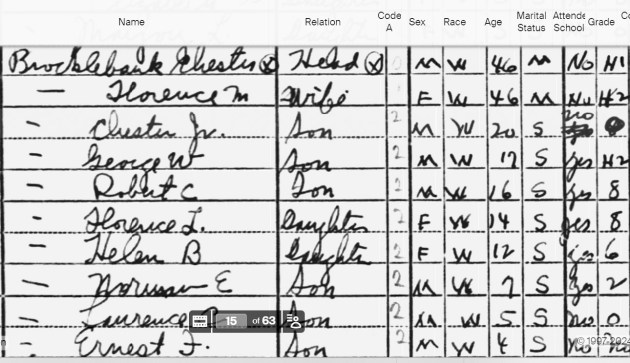 Name Relation Code A Sex Race Age Marital Status Attende School Grade Co
Brocklebank Chester ⓧ Head ⓧ 0 M W 46 M No H1
— Florence M Wife F W 46 M No H2
— Chester Jr. Son 2 M W 20 S no
— George W Son 2 M W 17 S yes H2
— Robert C Son 2 M W 16 S yes 8
— Florence L. Daughter 2 F W 14 S yes 8
— Helen B Daughter 2 F W 12 S yes 6
— Norman E Son 2 M W 7 S yes 2
— Laurence Son 2 M W 5 S no 0
— Ernest F. Son 2 M W 4 S no no
15 of 63
© 1997-2024